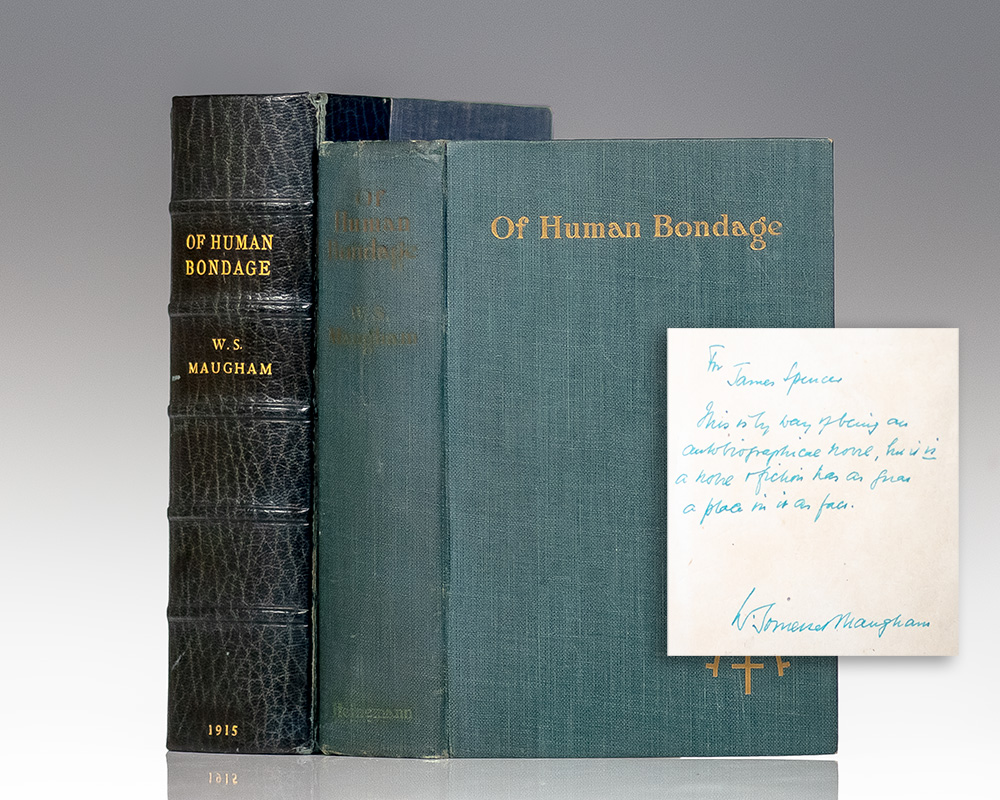 OF HUMAN
BONDAGE
W. S.
MAUGHAM
1915
Of
Human
Bondage
W. S.
Maugham
Heinemann
Of Human Bondage
For
James Spencer
This is by way of being an
autobiographical novel, but it is
a novel & fiction has as great
a place in it as fact.
W. Somerset Maugham